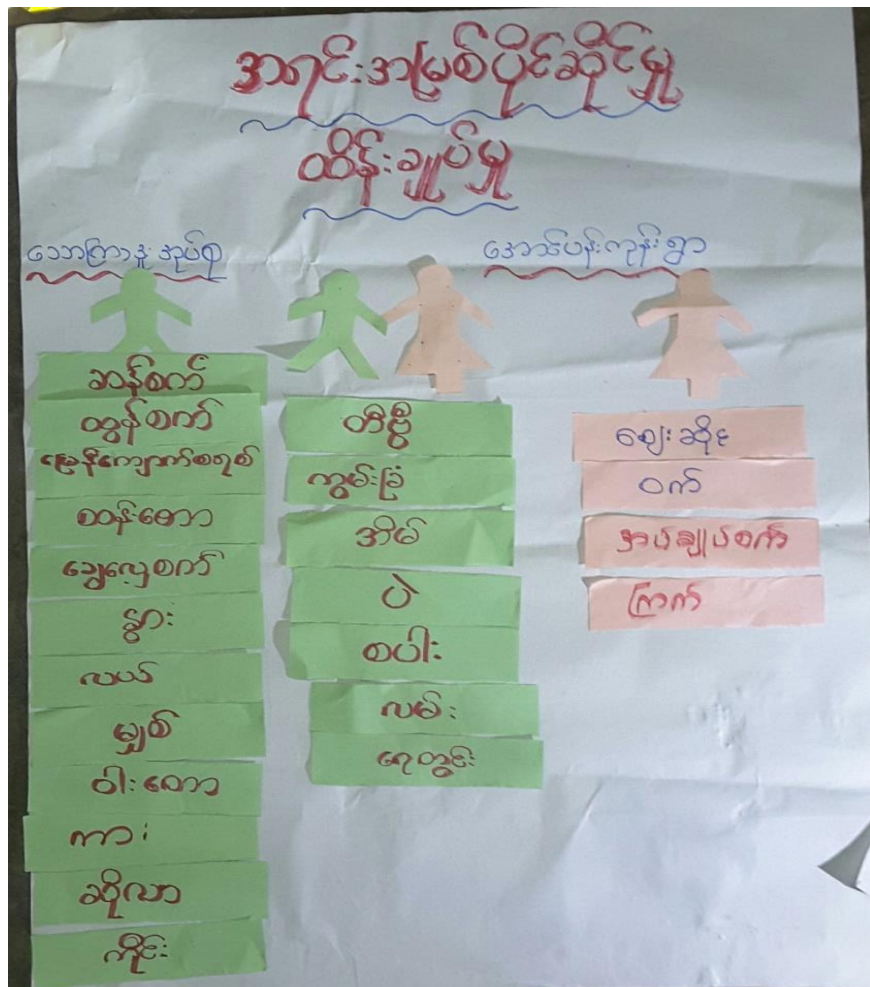 အရင်းအမြစ်ပိုင်ဆိုင်မှု
ထိန်းချုပ်မှု
သောကြာဒူးအုပ်စု
အောင်ပန်းကုန်းရွာ
ဆန်စက်
ထွန်စက်
မြေနီကျောက်စရစ်
ထန်းတော
ချွေလှေ့စက်
နွား
လယ်
မျှစ်
ဝါးတော
ကား
ဆိုလာ
ကိုင်း
တီဗွီ
ကွမ်းခြံ
အိမ်
ပဲ
စပါး
လမ်း
ရေတွင်း
ဈေးဆိုင်
ဝက်
အပ်ချုပ်စက်
ကြက်